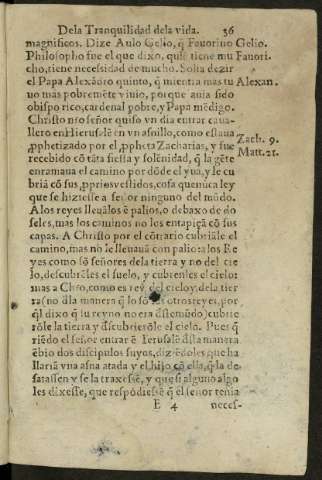 Dela Tranquilidad dela vida. 36
magnificos. Dize Aulo Gelio, q̃ Fauorino Gelio.
Philosopho fue el que dixo, quiẽ tiene mu Fauori-
cho, tiene necessidad de mucho. Solia dezir
el Papa Alexãdro quinto, q̃ mientra mas tu Alexan.
uo mas pobremẽte viuio, porque auia sido
obispo rico, cardenal pobre, y Papa mẽdigo.
Christo nr̃o señor quiso vn dia entrar caua-
llero en Hierusalẽ en vn asnillo, como estaua
pphetizado por el ppheta Zacharias, y fue Zach. 9.
recebido cõ tãta fiesta y solẽnidad, q̃ la gẽte Matt. 21.
enramaua el camino por dõde el yua, y le cu
bria cõ sus pprios vestidos, cosa que nũca ley
que se hiziesse a señor ninguno del mũdo.
A los reyes lleuãlos ẽ palios, o debaxo de do
seles, mas los caminos no los entapiçã cõ sus
capas. A Christo por el cõtrario cubriãle el
camino, mas no le lleuauã con palio: a los Re
yes como sõ señores dela tierra y no del cie
lo, descubrẽles el suelo, y cubrenles el cielo:
mas a Chr̃o, como es rey del cielo y dela tier
ra (no dla manera q̃ lo sõ los otros reyes, por
q̃l dixo q̃ su reyno no era dste mũdo) cubrie
rõle la tierra y dscubrierõle el cielo. Pues q̃
riẽdo el señor entrar ẽ Ierusalẽ dsta manera
ẽbio dos discipulos suyos, diziẽdoles que ha
llariã vna asna atada y el hijo cõ ella, q̃ la de
satassen y se la traxessẽ, y que si alguno algo
les dixesse, que respõdiessẽ q̃ el señor tenia
E 4 neces-